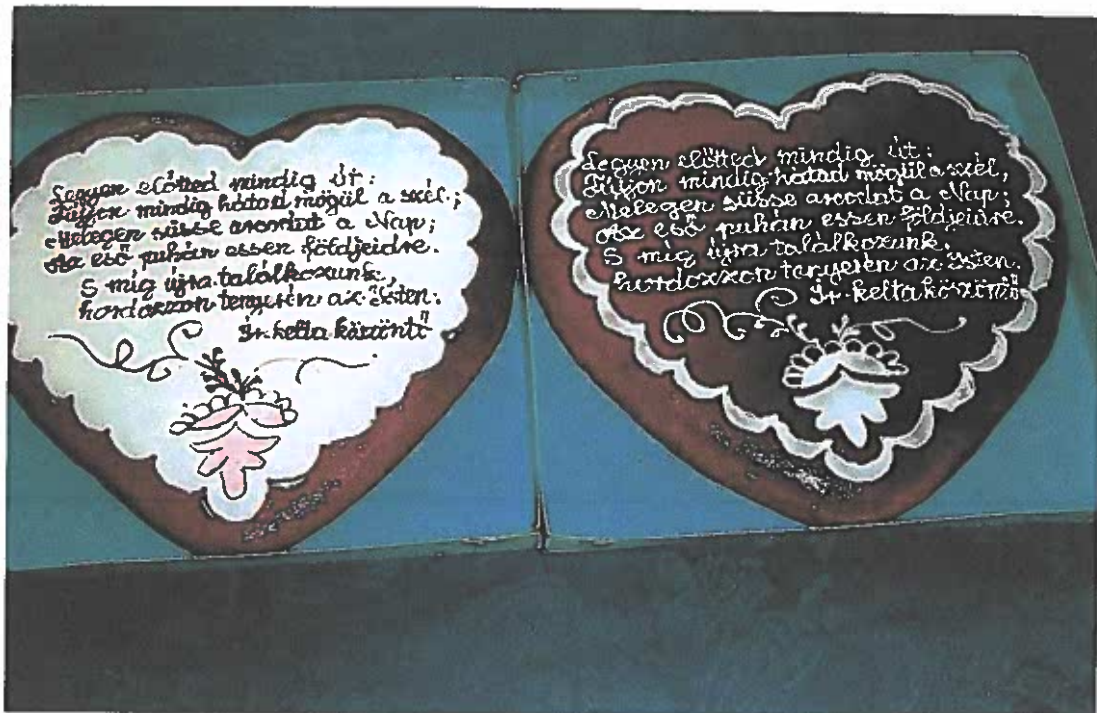 Legyen előtted mindig út:
Fújjon mindig hátad mögül a szél;
Melegen süsse arcodat a Nap;
Az eső puhán essen földjeidre.
S míg újra találkozunk,
hordozzon tenyerén az Isten.
Ír-kelta köszöntő
Legyen előtted mindig út:
Fújjon mindig hátad mögül a szél,
Melegen süsse arcodat a Nap;
Az eső puhán essen földjeidre.
S míg újra találkozunk,
hordozzon tenyerén az Isten.
Ír-kelta köszöntő